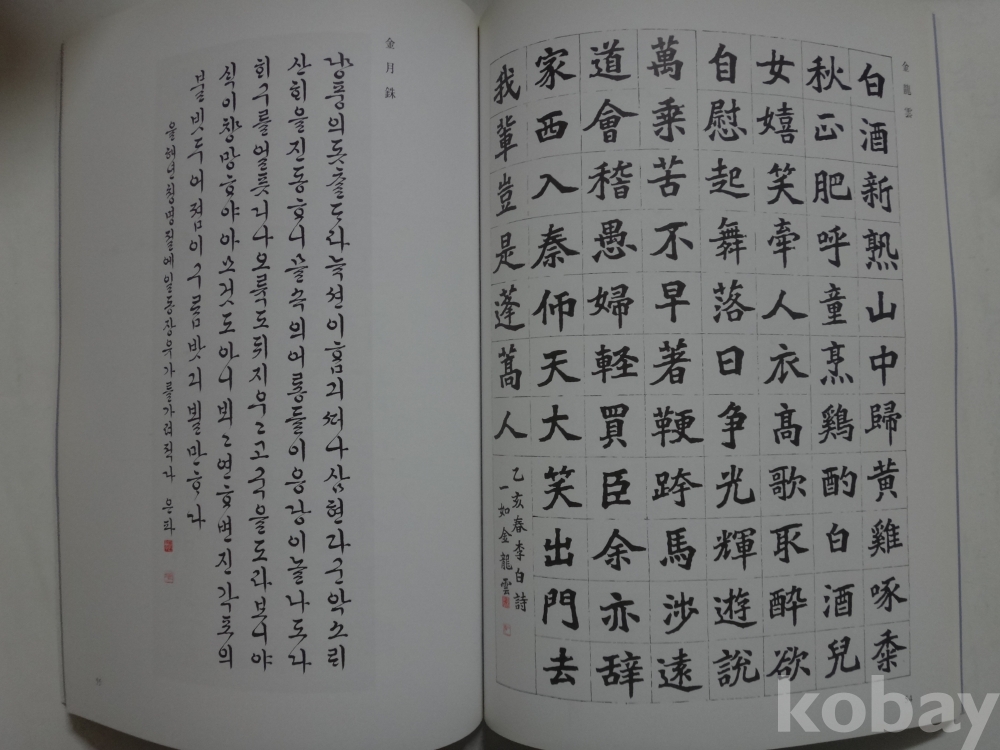 金龍雲
白酒新熟山中歸黃雞啄黍
秋正肥呼童烹鷄酌白酒兒
女嬉笑牽人衣高歌取醉欲
自慰起舞落日争光輝遊說
萬乗苦不早著鞭跨馬涉遠
道會稽愚婦軽買臣余亦辞
家西入秦仰天大笑出門去
我輩豈是蓬蒿人
乙亥春李白詩
一如金龍雲
金月銖
쟝풍의돗츨ᄃᆞ라뉵션이ᄒᆞᆷ긔ᄯᅥ나삼현과군악소ᄅᆡ
산ᄒᆡ을진동ᄒᆞ니믈속의어룡들이응당이놀나도다
ᄒᆡ구를얼픗나니오륙도뒤지우고고국을도라보니야
식이창망ᄒᆞ야아모것도아니뵈고연ᄒᆡ변진각포의
불빗두어졈이구름밧긔뵐만ᄒᆞ다
을해년청명절에일동장유가를가려적다 은파
kobay